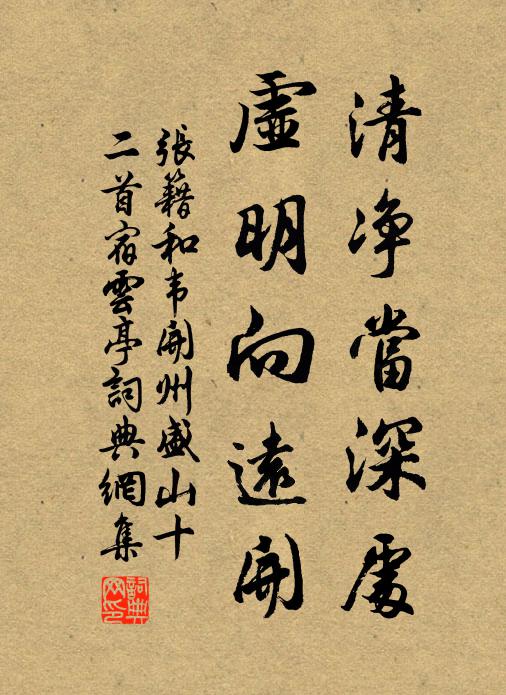 清淨當深處
虛明向遠開
張籍和韦開州盛山十
二首宿雲亭詞典網集
詞典
网印